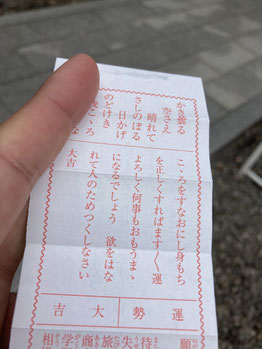 かき曇る
空さえ
晴れて
さしのぼる
日かげ
のどけき
こゝろ
な
こゝろをすなおにし身もち
を正しくすればますく運
よろしく何事もおもうまゝ
になるでしょう 欲をはな
れて人のためつくしなさい
大吉
運勢
大吉
願
待
失
旅
商
学
相